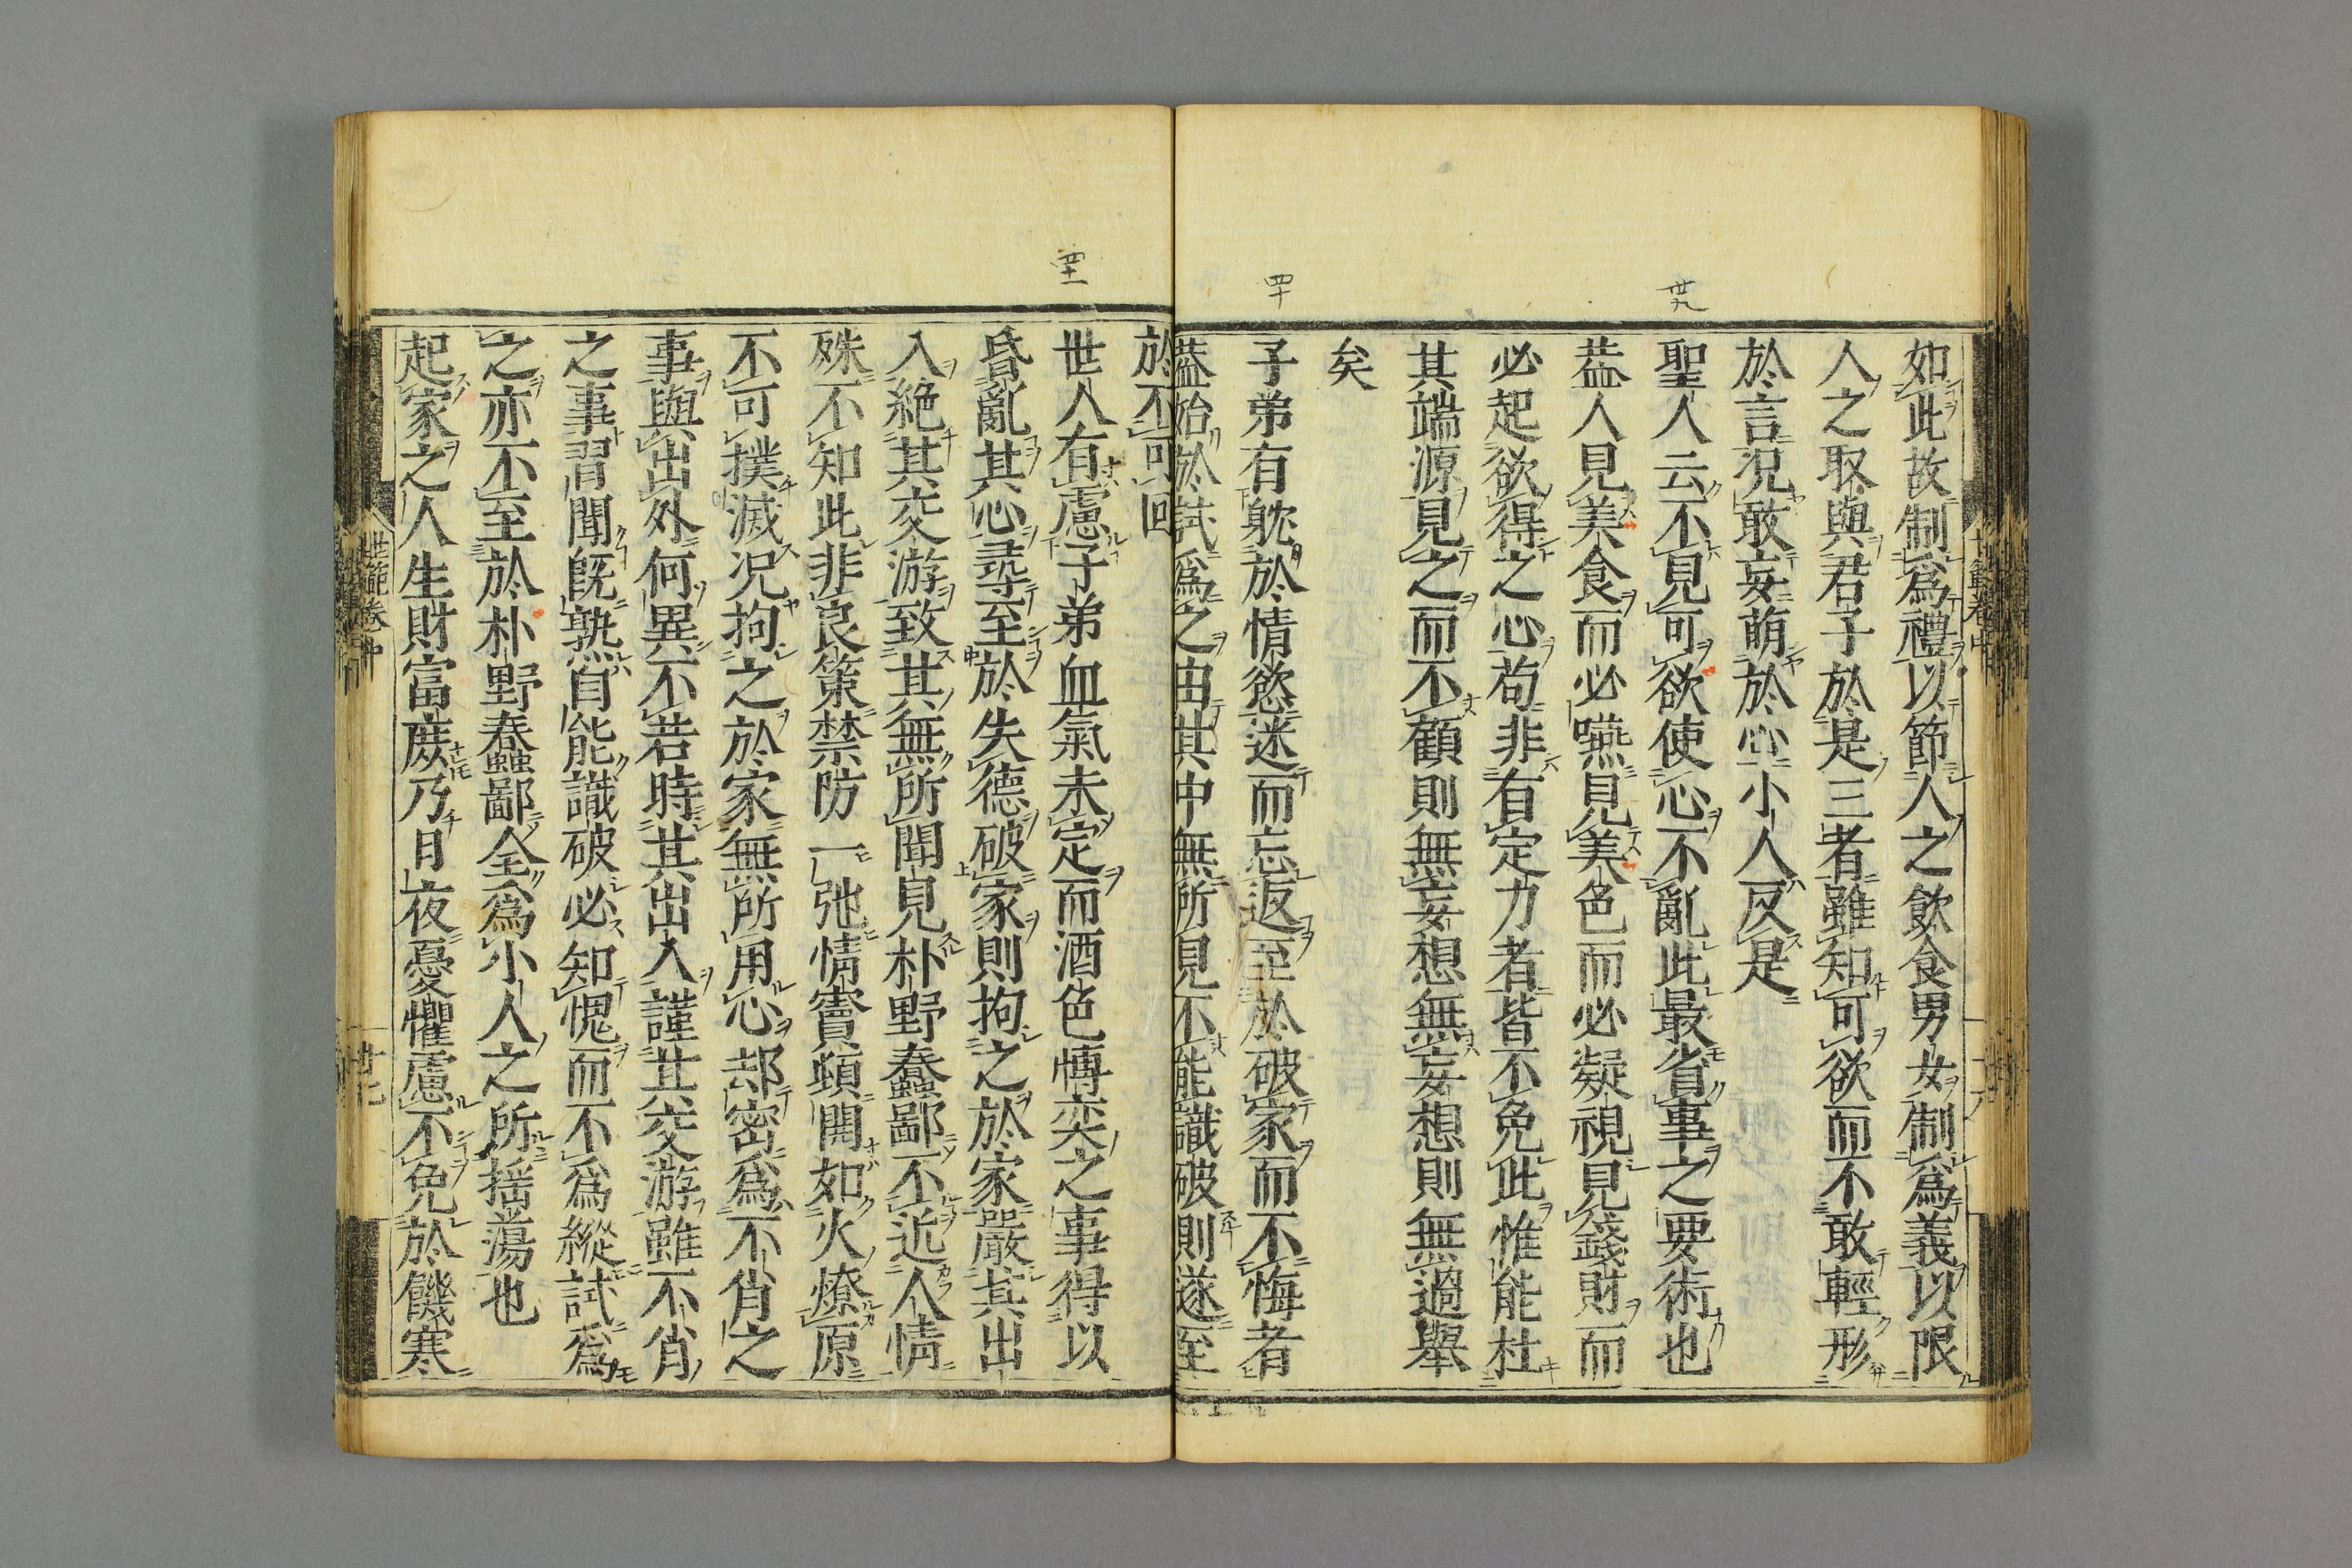 如此故制爲禮以節人之飲食男女制爲義以限
人之取與君子於是三者雖知可欲而不敢輕形
於言況敢妄萌於心小人反是
卅九
聖人云不見可欲使心不亂此最省事之要術也
葢人見美食而必嚥見美色而必凝視見錢財而
必起欲得之心苟非有定力者皆不免此惟能杜
其端源見之而不顧則無妄想無妄想則無過舉
矣
四十
子弟有躭於情慾迷而忘返至於破家而不悔者
葢始於試爲之由其中無所見不能識破則遂至
於不可回
四十一
世人有慮子弟血氣未定而酒色愽奕之事得以
昏亂其心尋至於失德破家則拘之於家嚴其出
入絶其交游致其無所聞見朴野蠢鄙不近人情
殊不知此非良策禁防一弛情竇頓開如火燎原
不可撲滅況拘之於家無所用心却密爲不肖之
事與出外何異不若時其出入謹其交游雖不肖
之事習聞旣熟自能識破必知愧而不爲縱試爲
之亦不至於朴野蠢鄙全爲小人之所揺蕩也
起家之人生財富庻乃日夜憂懼慮不免於饑寒
世範卷中